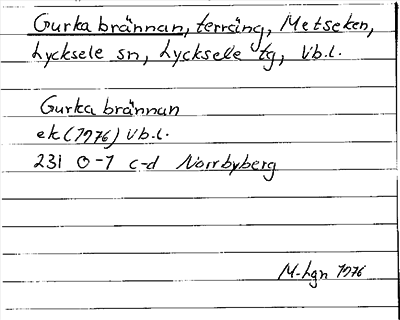 Gurkabrännan, terräng, Metseken,
Lycksele sn, Lycksele tg, Vb.l.
Gurkabrännan
ek (1976) Vb.l.
231 0-1 c-d Norrbyberg
M-hgn 1976